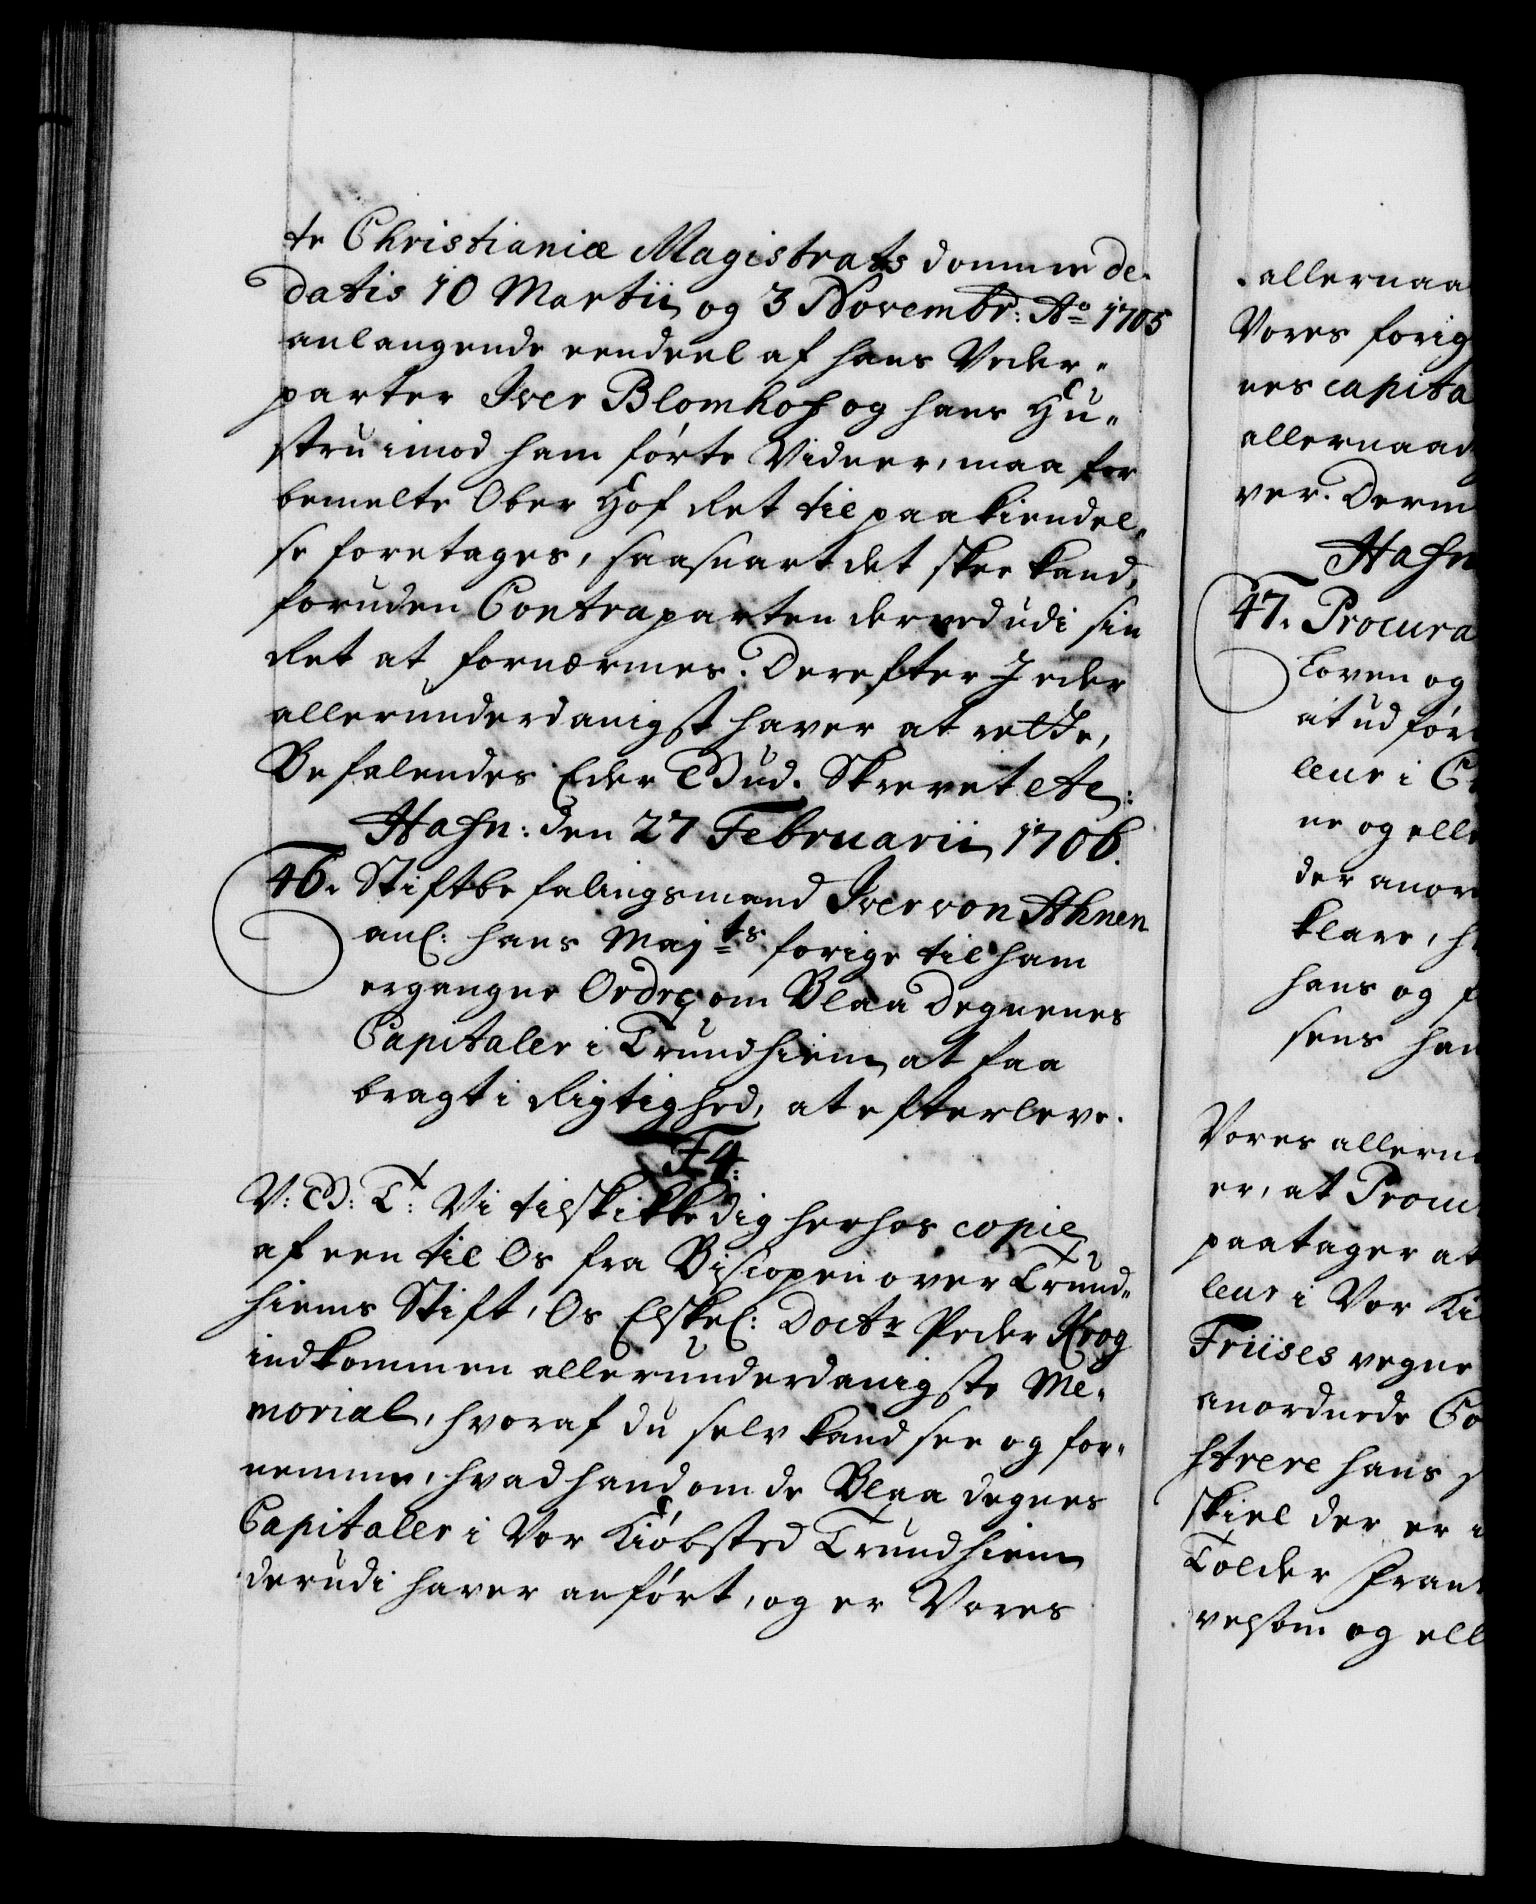 te Christianiæ Magistrats domme de
datis 10 Martii og 3 Novembr: Ao 1705
anlangende eendeel af hans Veder-
parter Iver Blomhof og hans Hu-
stru imod ham førte Vidner, maa for
bemelte Ober Hof Ret til paakiendel-
se foretages, saasnart det skee kand,
foruden Contraparten derved udi sin
Ret at fornærmes. Derefter I eder
allerunderdanigst haver at rette,
Befalendes Eder Gud. Skrevet etc:
Hafn: den 27 Februarii 1706.
46. Stiftbefalingsmand Iver von Ahnen
anl: hans Majts forige til ham
ergangne Ordre om Blaa Degnenes
Capitaler i Trundhiem at faa
bragt i Rigtighed, at efterleve.
F4:
V: G: T: Vi tilskikke dig herhos copie
af een til Os fra Biscopen over Trund-
hiems Stift, Os Elskel: Doctr Peder Krog
indkommen allerunderdanigste Me-
morial, hvoraf du selv kand see og for-
nemme, hvad hand om de Blaa Degnes
Capitaler i Vor Kiøbsted Trundhiem
derudi haver anført, og er Vores
allernaa
Vores forig
nes capita
allernaad
ver. Derm
Hafn
47. Procura
Loven og
at udfør
leur i C
ne og elle
der anor
klare, h
hans og f
sens han
Vores allern
er, at Procu
paatager at
leur i Vor Ki
Friises vegne
anordnede Co
strere hans
skiel der er i
Tolder Fran
velsom og ell